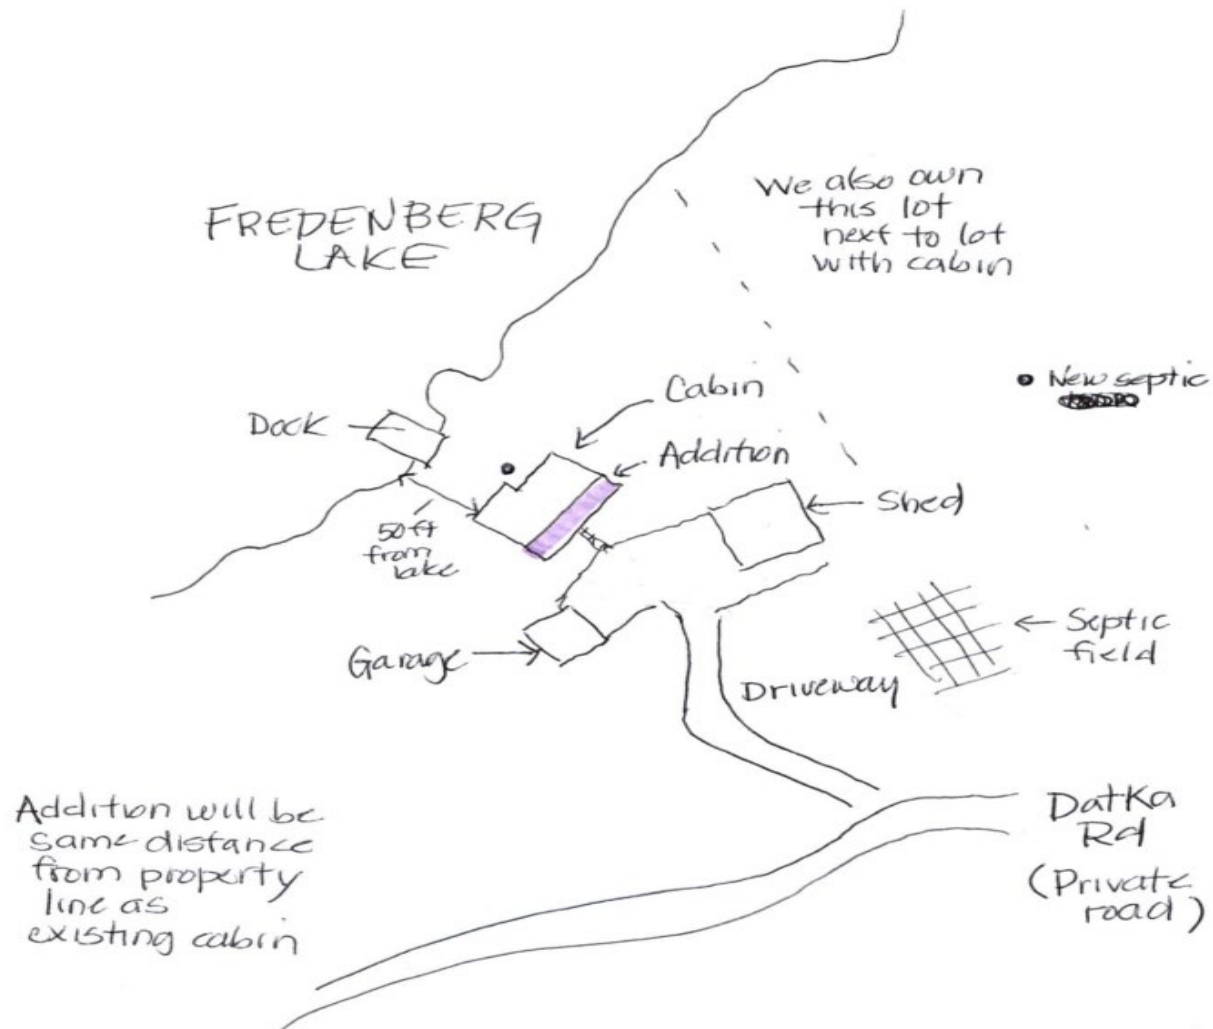 FREDENBERG
LAKE
We also own
this lot
next to lot
with cabin
New septic
Cabin
Dock
Addition
Shed
50 ft
from
lake
Septic
field
Garage
Driveway
Addition will be
same distance
from property
line as
existing cabin
Datka
Rd
(Private
road)